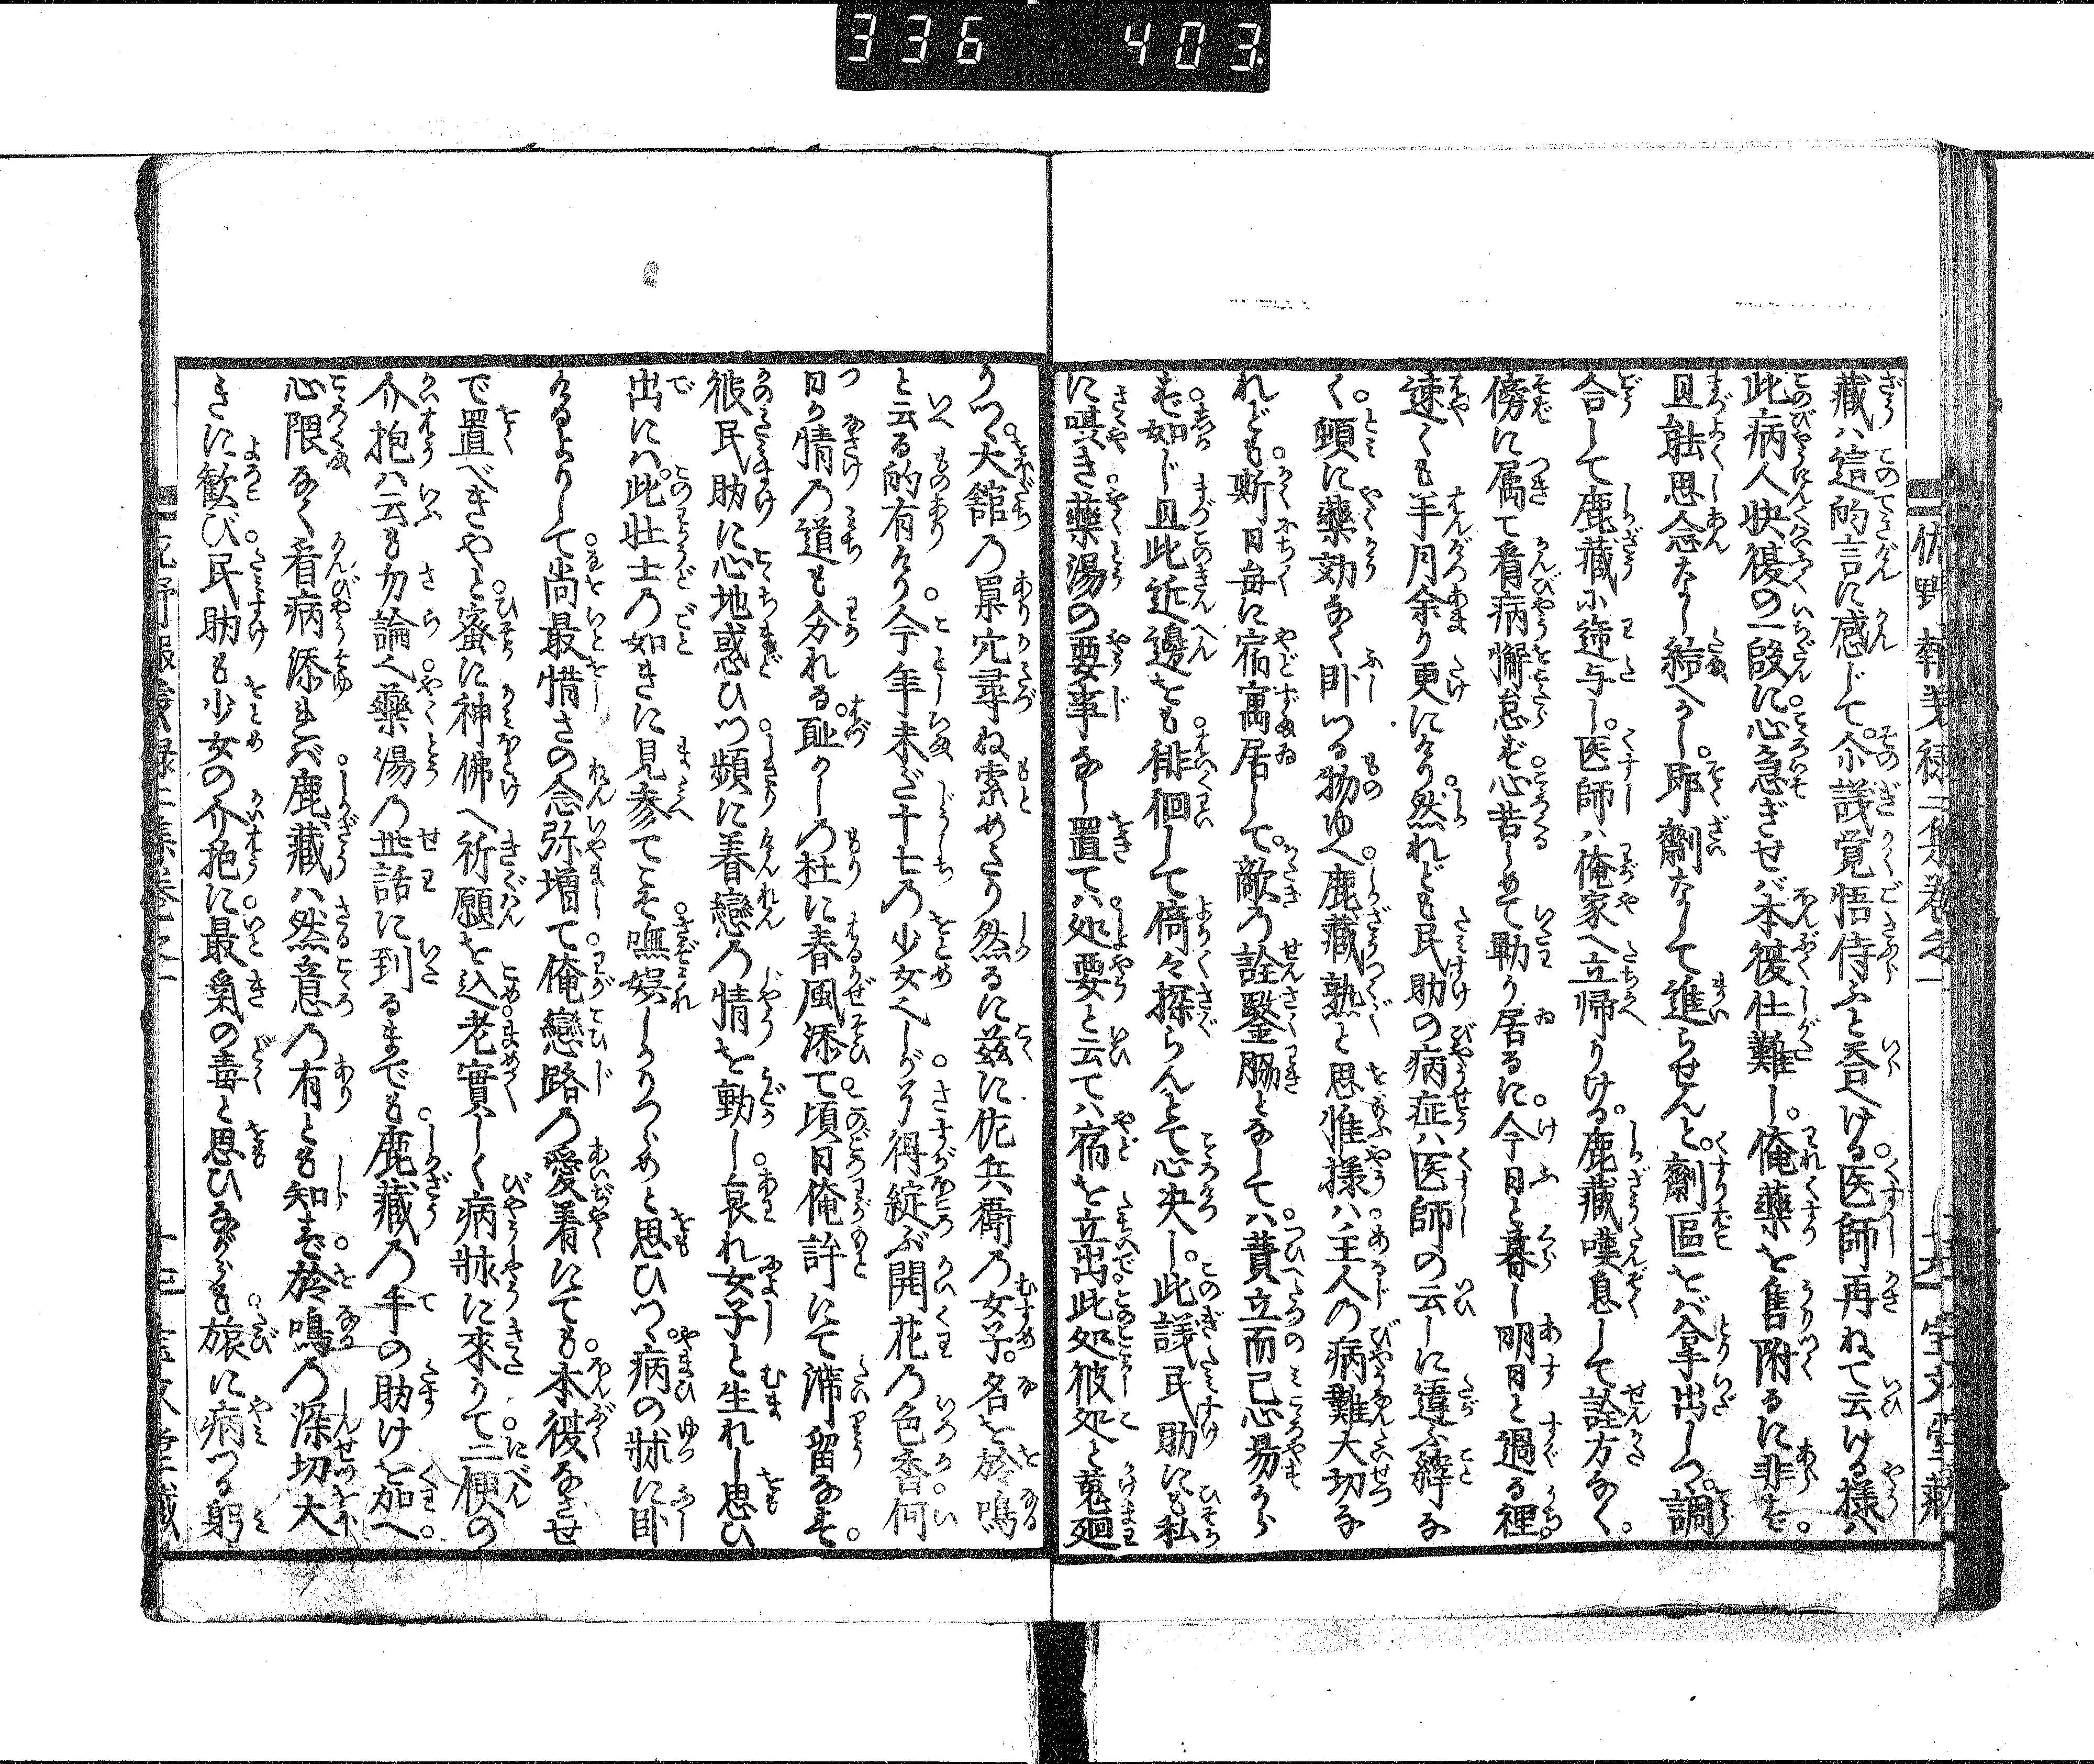 336 403
佐野報義録二集巻之一 十五 宝文堂蔵
蔵ハ這的言に感じて。尒議覚悟侍ふと荅へける。医師再ねて云ける様ハ
此病人快復の一段に心急ぎせバ本復仕難し。俺藥を售附るに非ず。
且能思念なし給へかし。即劑なして進らせんと。劑匱をバ拿出しつ。調
合して鹿藏に逓与し。医師ハ俺家へ立帰りける。鹿藏嘆息して詮方なく。
傍に属て看病懈怠ず心苦しめて勤り居るに。今日と暮し明日と過る裡。
速くも半月余り更にけり。然れども民助の病症ハ医師の云しに違ふ縡な
く。頓に藥効なく卧つる物ゆへ。鹿藏熟と思惟様。ハ主人の病難大切な
れども。斯日毎に宿寓居して。敵の詮鑿脇となしてハ。費立而已易から
ず。如じ且此近邊をも。徘徊して倚々探らんとて心决し。此議民助にも私
に咡き。藥湯の要事なし置てハ。処要と云てハ宿を立出。此処彼処と蒐廻
りつ。大舘の巣穴尋ね索めたり然るに茲に佐兵衛の女子。名を於鳴
と云る的有けり。今年未ざ十七の少女ヘしが。得綻ぶ開花の色香。何
つ日か情の道も分れる。耻かしの杜に春風添て。頃日俺許にて滞留なす。
彼民助に心地惑ひつ。頻に眷戀の情を動し。哀れ女子と生れし思ひ
出にハ。此壮士の如きに見参てこそ。嘸娯しかりつらめと思ひつ。病の牀に卧
けるよりして。尚最惜さの念弥増て。俺戀路の愛着にても。本復なさせ
で置べきやと。蜜に神佛へ祈願を込。老實しく病牀に來りて。二便の
介抱ハ云も勿論。藥湯の世話に到るまでも。鹿藏の手の助けを加へ。
心隈なく看病添れバ。鹿藏ハ然意の有とも知ず。於鳴の深切大
きに歓び。民助も少女の介抱に。最氣の毒と思ひながらも。旅に病つる躬